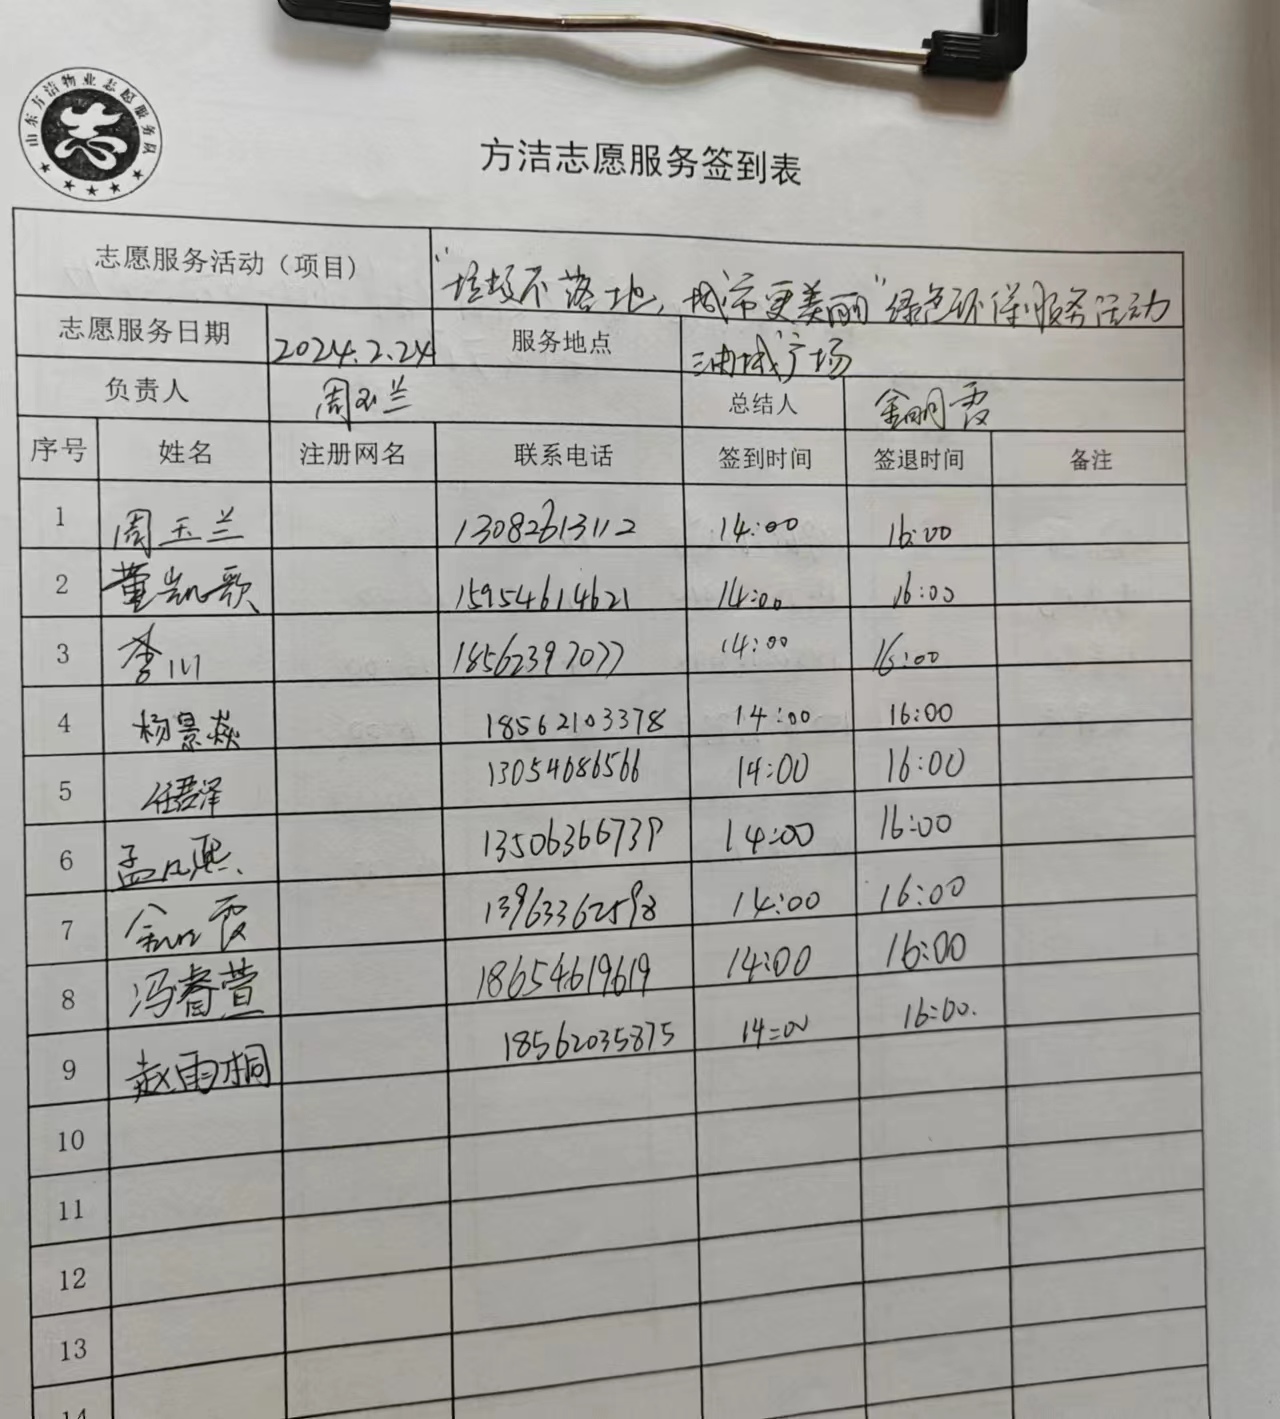 山东方洁物业志愿服务队
志
方洁志愿服务签到表
志愿服务活动（项目） "垃圾不落地，城市更美丽"绿色环保服务活动
志愿服务日期 2024.2.24 服务地点 油城广场
负责人 周玉兰 总结人 金明霞
序号 姓名 注册网名 联系电话 签到时间 签退时间 备注
1 周玉兰 13082613112 14:00 16:00
2 董凯歌 15954614621 14:00 16:00
3 李川 18562397077 14:00 16:00
4 杨景焱 18562103378 14:00 16:00
5 任君泽 13054686566 14:00 16:00
6 孟凡熙 13506366739 14:00 16:00
7 金明霞 13963362598 14:00 16:00
8 冯睿萱 18654619619 14:00 16:00
9 赵雨桐 18562035875 14:00 16:00.
10
11
12
13
14